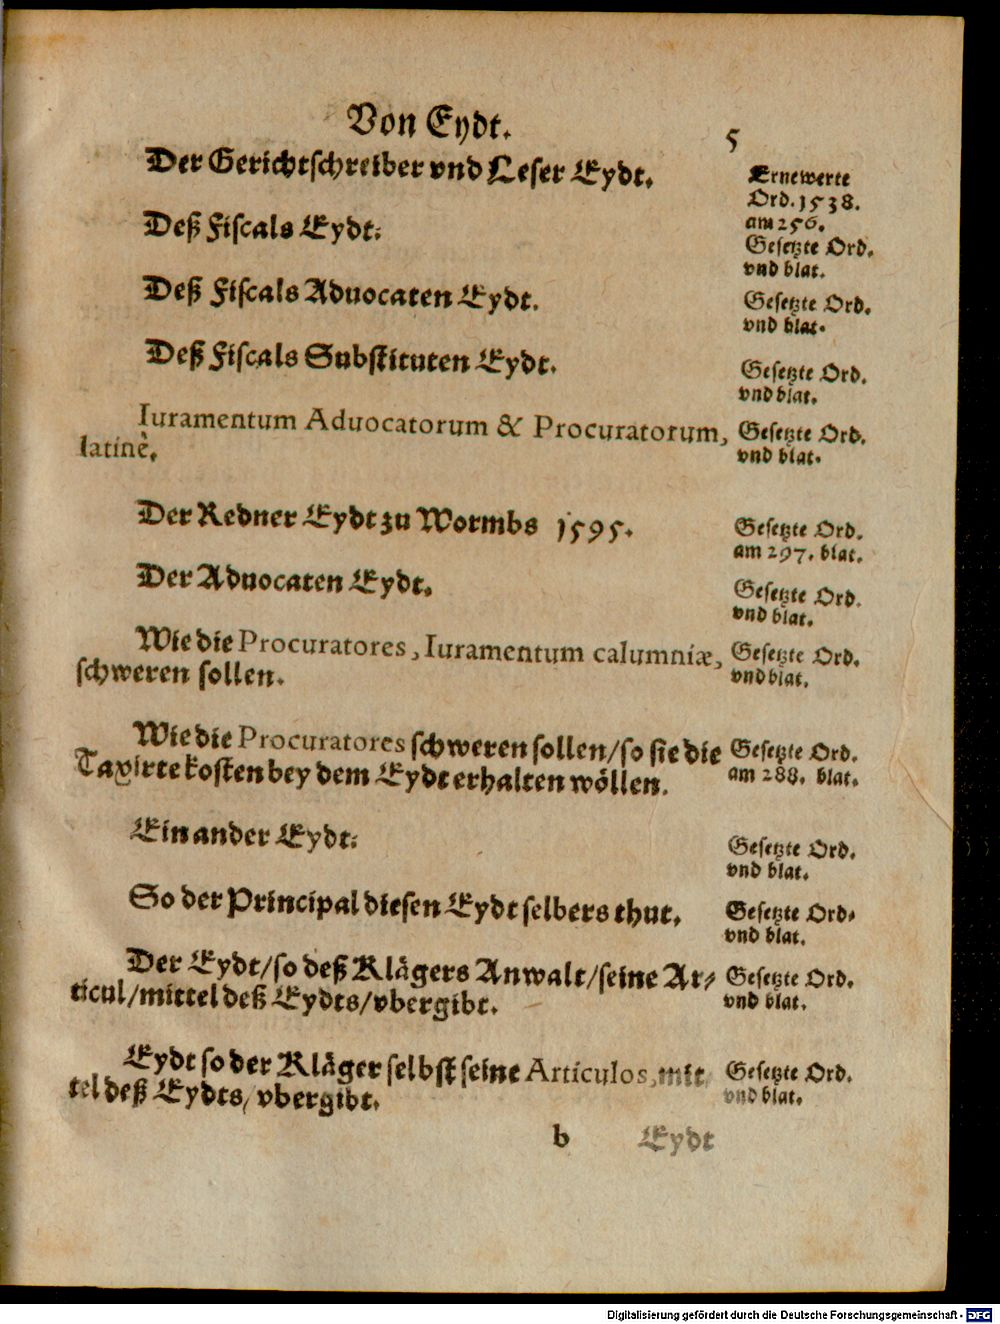 Von Eydt.
5
Der Gerichtschreiber vnd Leser Eydt.
Ernewerte
Ord. 1538.
am 256.
Deß Fiscals Eydt:
Gesetzte Ord.
vnd blat.
Deß Fiscals Aduocaten Eydt.
Gesetzte Ord.
vnd blat.
Deß Fiscals Substituten Eydt.
Gesetzte Ord.
vnd blat.
Iuramentum Aduocatorum & Procuratorum,
latinè.
Gesetzte Ord.
vnd blat.
Der Redner Eydt zu Wormbs 1595.
Gesetzte Ord.
am 297. blat.
Der Aduocaten Eydt.
Gesetzte Ord.
vnd blat.
Wie die Procuratores, Iuramentum calumniæ,
schweren sollen.
Gesetzte Ord.
vnd blat.
Wie die Procuratores schweren sollen/so sie die
Taxirte kosten bey dem Eydt erhalten wöllen.
Gesetzte Ord.
am 288. blat.
Ein ander Eydt:
Gesetzte Ord.
vnd blat.
So der Principal diesen Eydt selbers thut.
Gesetzte Ord.
vnd blat.
Der Eydt/so deß Klägers Anwalt/seine Ar-
ticul/mittel deß Eydts/vbergibt.
Gesetzte Ord.
vnd blat.
Eydt so der Kläger selbst seine Articulos, mit
tel deß Eydts/vbergibt.
Gesetzte Ord.
vnd blat.
b
Eydt
Digitalisierung gefördert durch die Deutsche Forschungsgemeinschaft - DFG